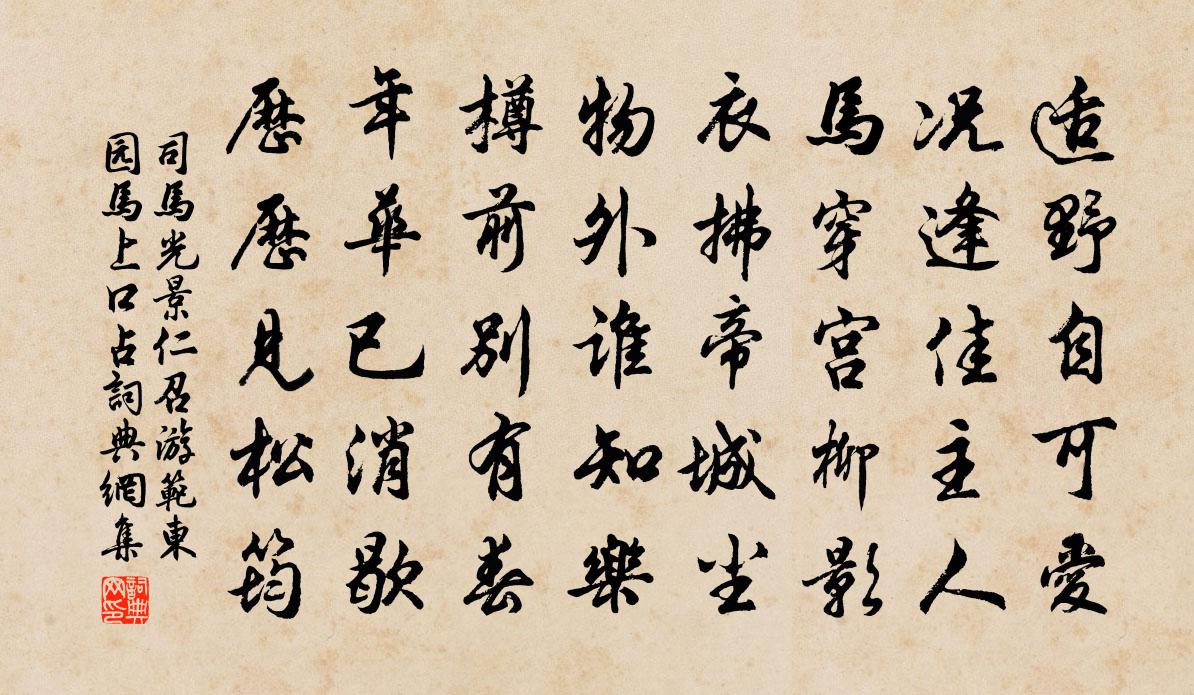 适野自可愛
况逢佳主人
馬穿宫柳影
衣拂帝城尘
物外谁知樂
樽前别有春
年華已消歇
歷歷見松筠
司馬光景仁召游範東
园馬上口占詞典網集
詞典网印